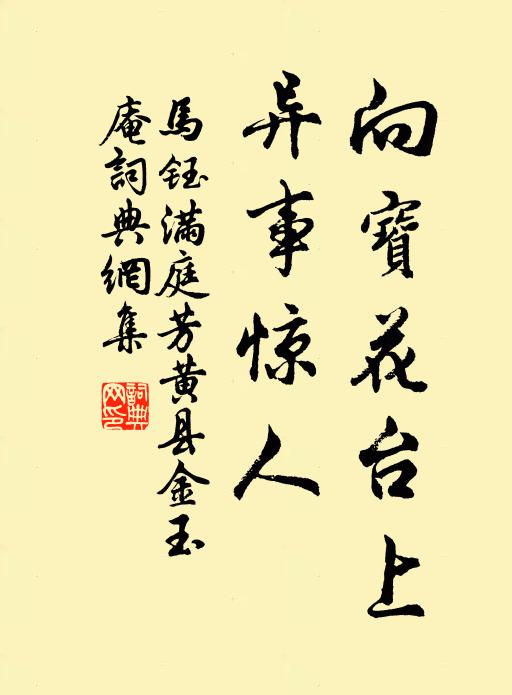 向寶花台上
异事惊人
馬鈺满庭芳黄县金玉
庵詞典網集
詞典
网印